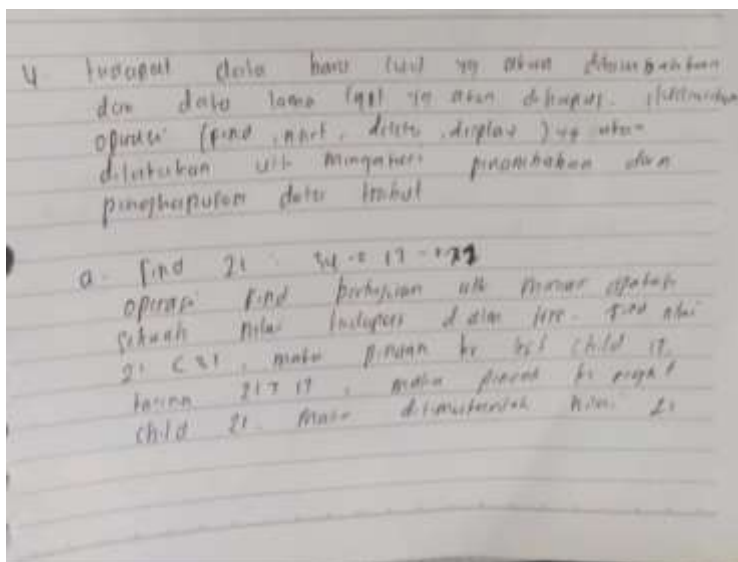 4 terdapat data baru (41) yg akan ditambahkan
dan data lama (98) yg akan dihapus.
operasi (find, insert, delete, display) yg akan
dilakukan utk penambahan dan
penghapusan data tersebut
a. find 21 : 34 → 17 →
operasi find bertujuan utk mencari apakah
sebuah nilai terdapat dalam tree.
21 < 34, maka pindah ke left child 17.
karena 21 > 17, maka pindah ke right
child 21. maka ditemukanlah nilai 21